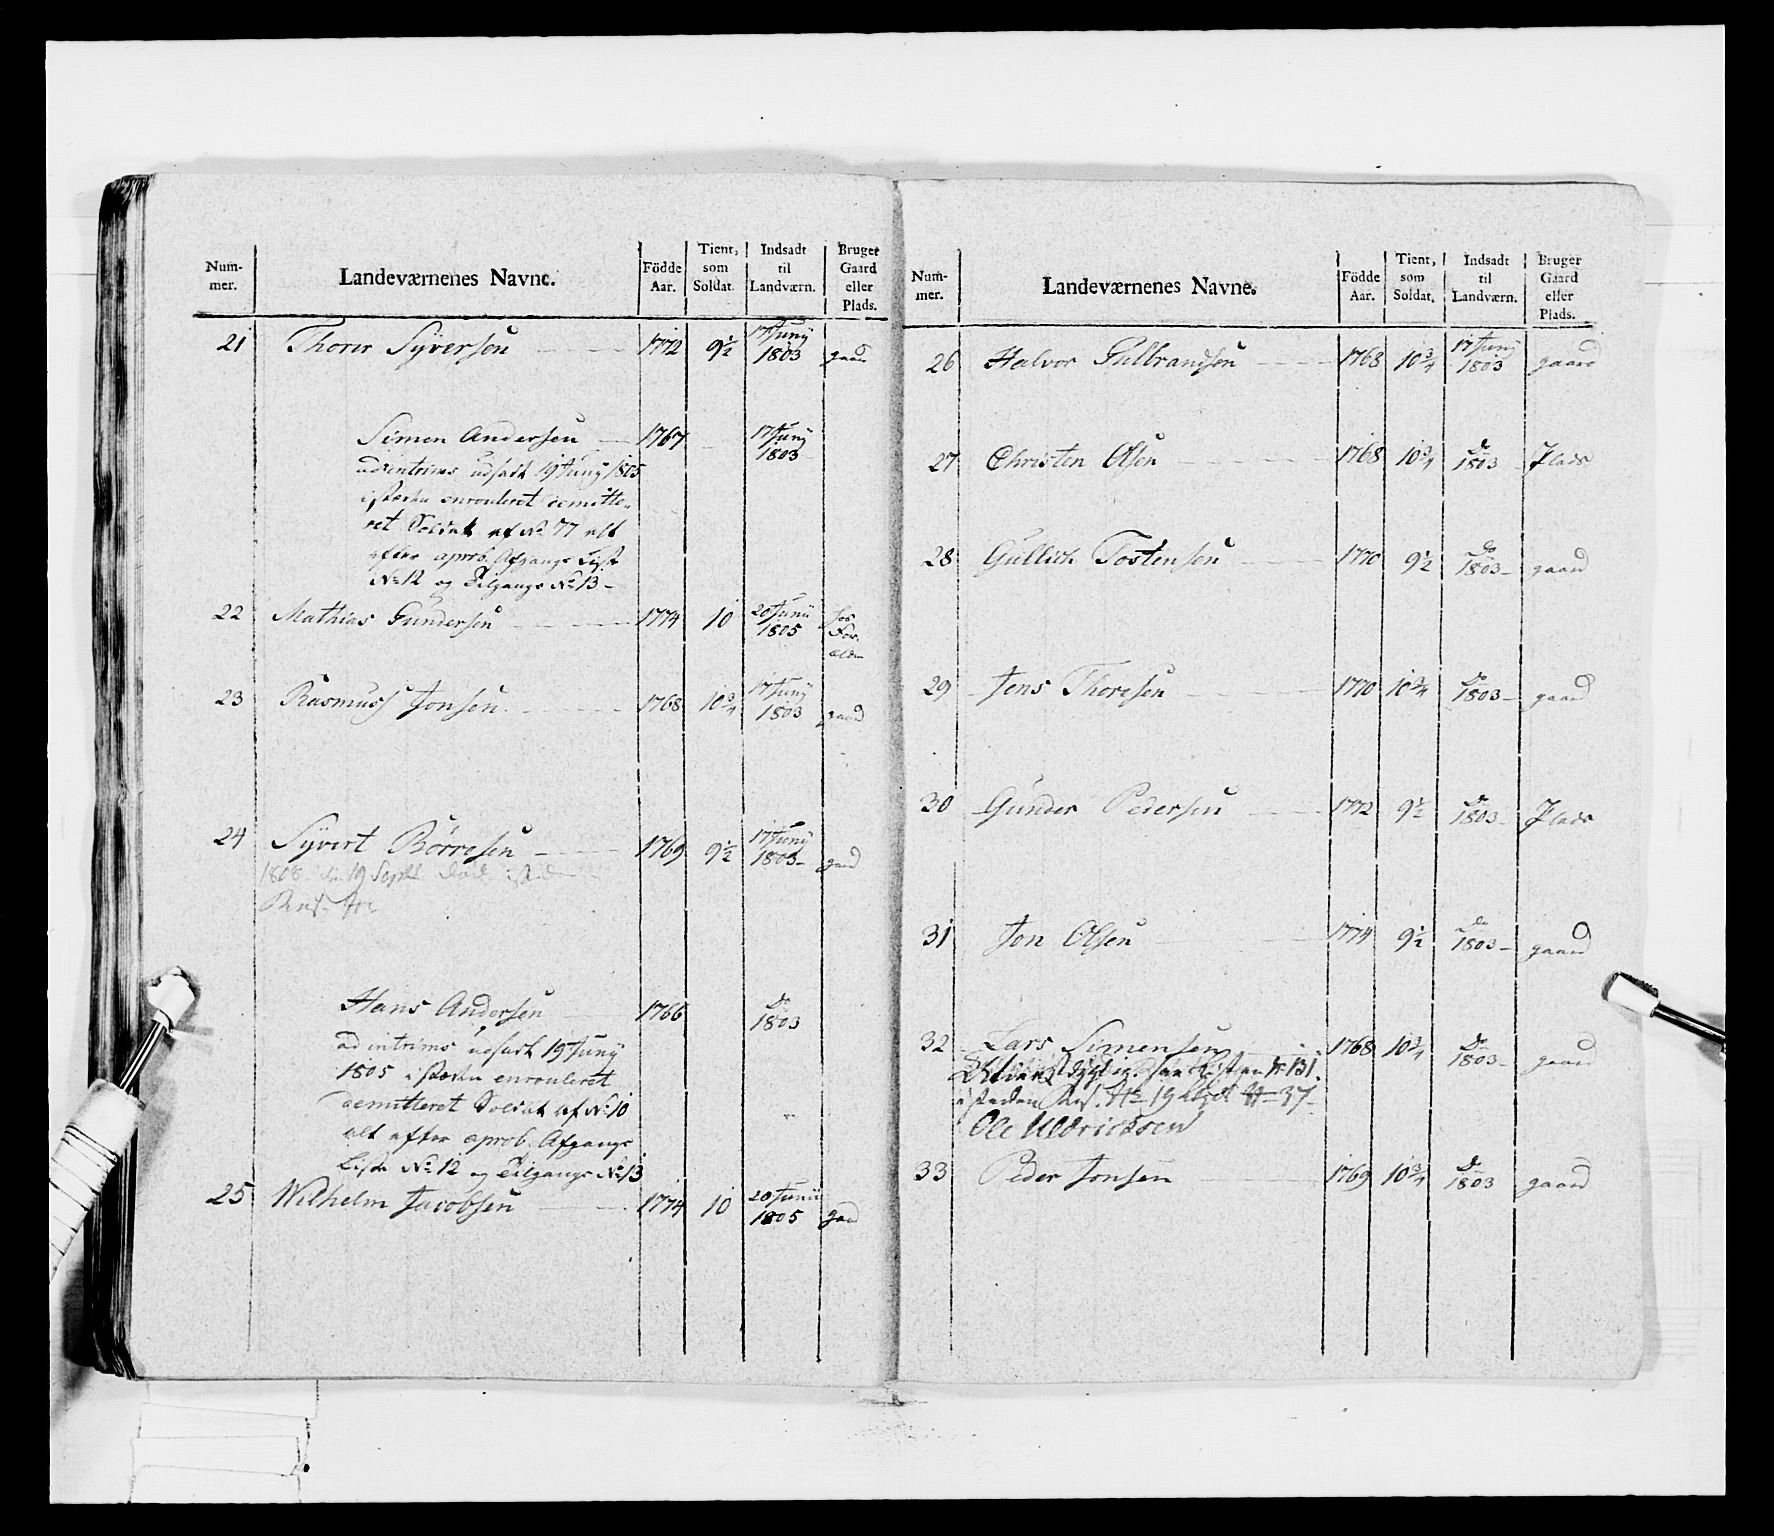 Num-
mer.
Landeværnenes Navne.
Födde
Aar.
Tient,
som
Soldat.
Indsadt
til
Landværn.
Bruger
Gaard
eller
Plads.
21 Thorer Syversen 1772 9½ 17 Juny 1803 gaard
Simon Andersen 1767 17 Juny 1803
ad intrims udsadt 19 Juny 1805
i stæden enrouleret demitte-
ret Soldat af No 77 alt
efter aprob. Afgangs Liste
No 12 og Tilgangs No 13
22 Mathias Gundersen 1774 10 20 Junii 1805 hos For ældr
23 Rasmus Jonsen 1768 10¾ 17 Juny 1803 gaard
24 Syvert Børresen 1769 9½ 17 Juny 1803 gaard
1808 den 19 Septbr
Hans Andersen 1766 Do 1803
ad intrims udsadt 19 Juny
1805 i stæden enrouleret
demitteret Soldat af No 10
alt efter aprob. Afgangs
Liste No 12 og Tilgangs No 13
25 Wilhelm Jacobsen 1774 10 20 Junii 1805 gaard
Num-
mer.
Landeværnenes Navne.
Födde
Aar.
Tient,
som
Soldat.
Indsadt
til
Landværn.
Bruger
Gaard
eller
Plads.
26 Halvor Gulbrandsen 1768 10¾ 17 Juny 1803 gaard
27 Christen Olsen 1768 10¾ Do 1803 Plads
28 Gullich Tostensen 1770 9½ Do 1803 gaard
29 Jens Thoresen 1770 10¾ Do 1803 gaard
30 Gunder Pedersen 1772 9½ Do 1803 Plads
31 Jon Olsen 1774 9½ Do 1803 gaard
32 Lars Simensen 1768 10¾ Do 1803 gaard
Listen No 131
i steden No 19 No 37
Ole Uldricksen
33 Peder Jonsen 1769 10¾ Do 1803 gaard